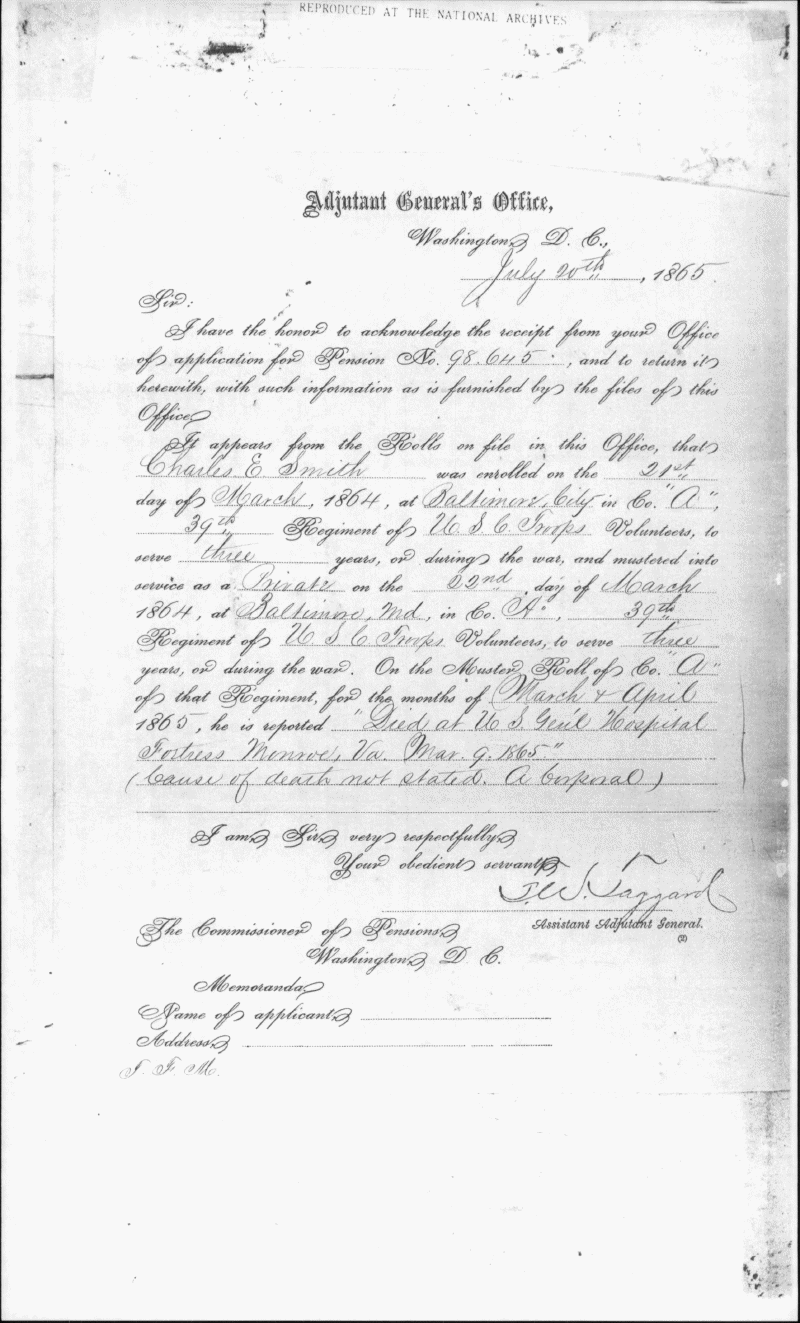 REPRODUCED AT THE NATIONAL ARCHIVES
Adjutant General's Office,
Washington, D. C.,
July 20th, 1865.
Sir:
I have the honor to acknowledge the receipt from your Office
of application for Pension No. 98.645, and to return it
herewith, with such information as is furnished by the files of this
Office.
It appears from the Rolls on file in this Office, that
Charles E Smith was enrolled on the 21st
day of March, 1864, at Baltimore City in Co. "A",
39th Regiment of U. S C Troops Volunteers, to
serve three years, or during the war, and mustered into
service as a Private on the 22nd day of March
1864, at Baltimore, Md, in Co. "A", 39th
Regiment of U. S C Troops Volunteers, to serve three
years, or during the war. On the Muster Roll of Co. "A"
of that Regiment, for the months of March & April
1865, he is reported "Died at U S. Genl Hospital
Fortress Monroe, Va. Mar. 9. 1865"
(Cause of death not stated. A Corporal)
I am, Sir, very respectfully,
Your obedient servant,
Taggard
Assistant Adjutant General.
(2)
The Commissioner of Pensions,
Washington, D. C.
Memoranda,
Name of applicant,
Address,
J. F. M.